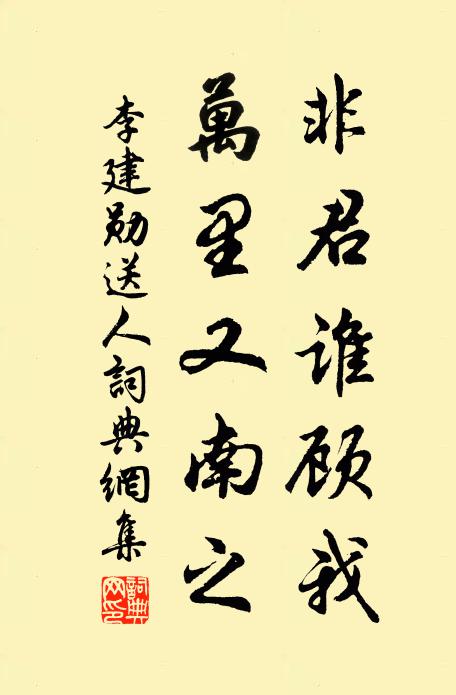 非君谁顾我
萬里又南之
李建勋送人詞典網集
詞典網印